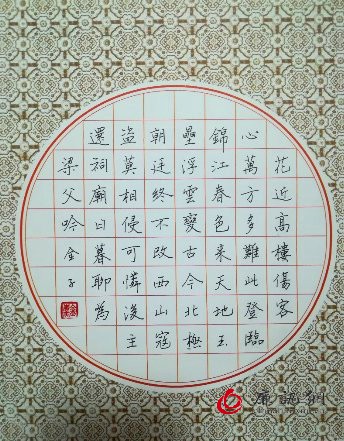 花近高樓傷客
心萬方多難此登臨
錦江春色来天地玉
壘浮雲變古今北極
朝廷終不改西山寇
盗莫相侵可憐後主
還祠廟日暮聊為
梁父吟